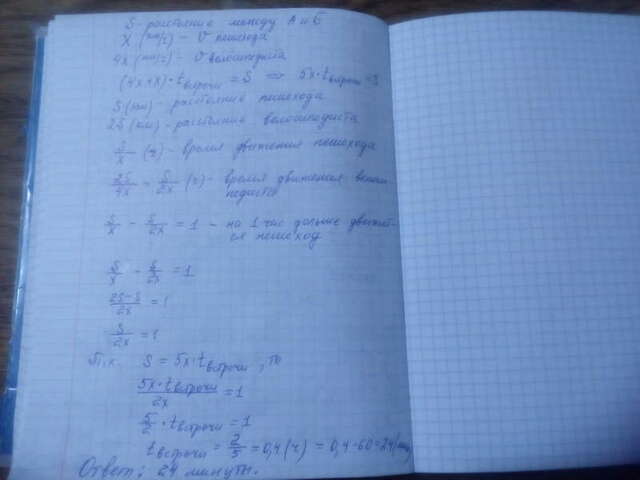 S - расстояние между А и Б
X (км/ч) - V пешехода
4X (км/ч) - V велосипедиста
(4X+X)·tвстречи = S => 5X·tвстречи = S
S (км) - расстояние пешехода
2S (км) - расстояние велосипедиста
S/X (ч) - время движения пешехода
2S/4X = S/2X (ч) - время движения велоси-
педиста
S/X - S/2X = 1 - на 1 час дольше движет-
ся пешеход
S/X - S/2X = 1
2S-S/2X = 1
S/2X = 1
Т.к. S = 5X·tвстречи, то
5X·tвстречи/2X = 1
5/2·tвстречи = 1
tвстречи = 2/5 = 0,4 (ч) = 0,4·60=24(мин)
Ответ: 24 минуты.